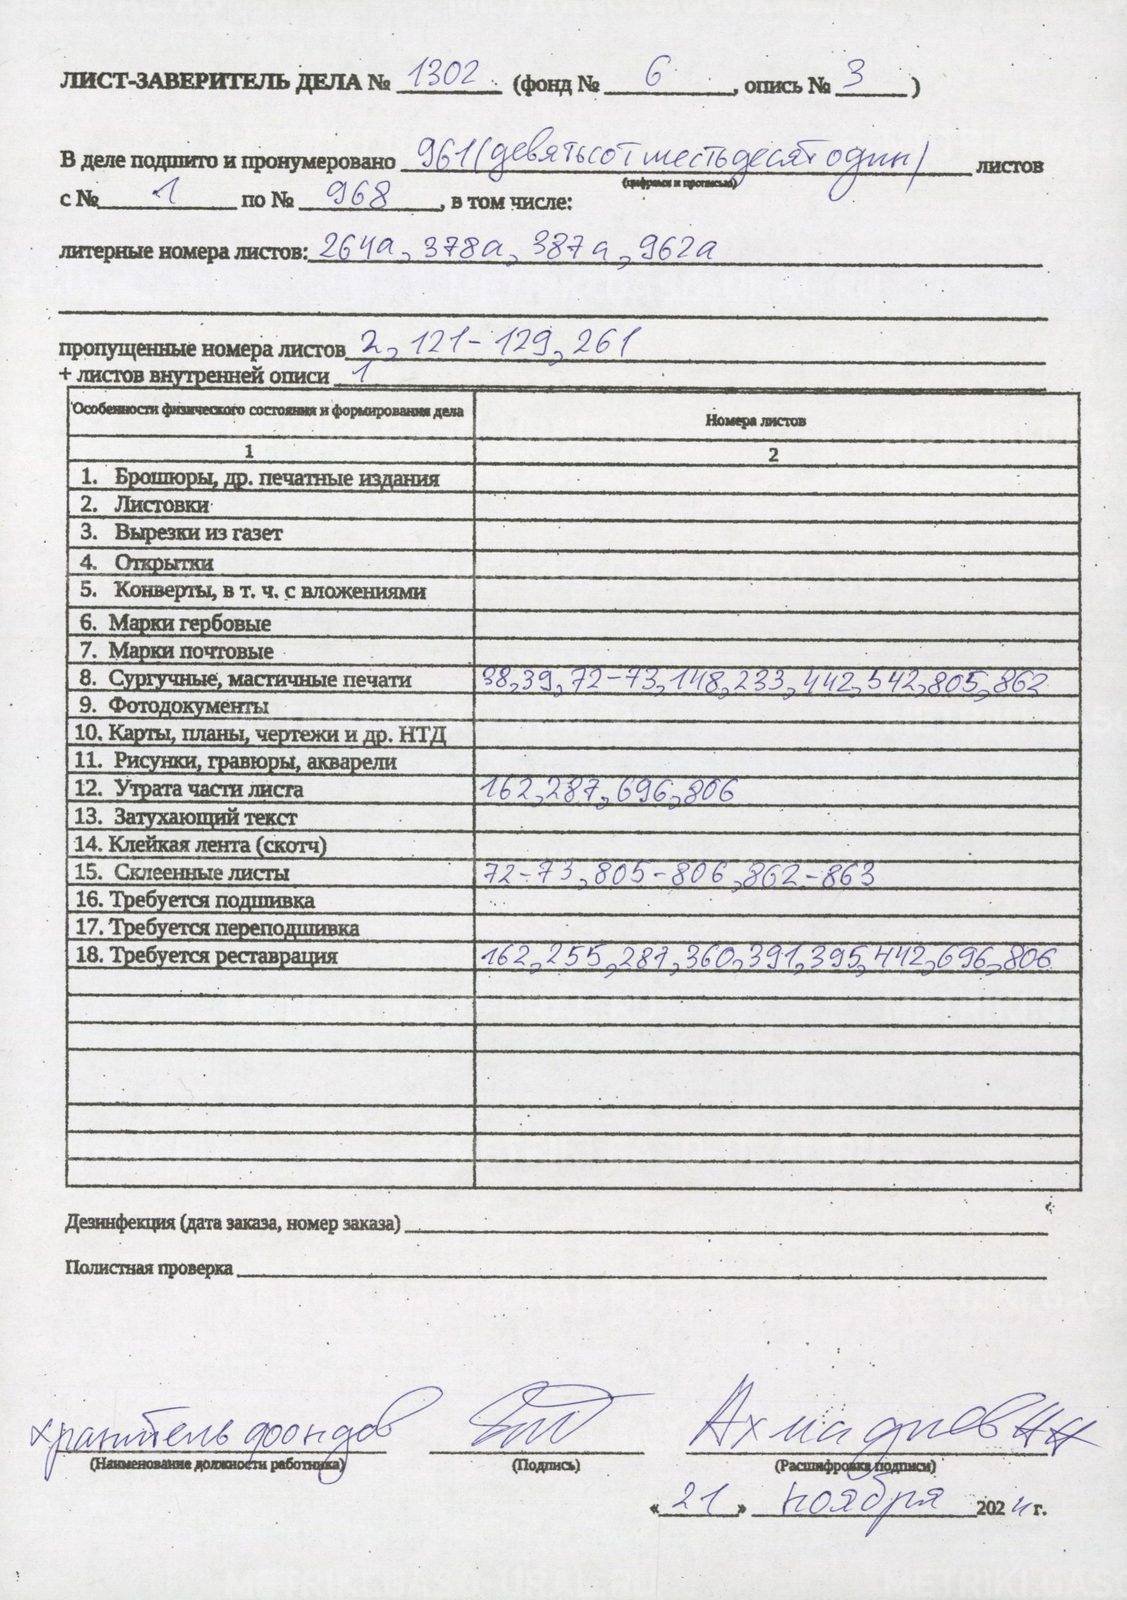 ЛИСТ-ЗАВЕРИТЕЛЬ ДЕЛА № 1302 (фонд № 6, опись № 3)
В деле подшито и пронумеровано 961 (девятьсот шестьдесят один) листов
(цифрами и прописью)
с № 1 по № 968, в том числе:
литерные номера листов: 264а, 378а, 387а, 962а
пропущенные номера листов 2, 121-129, 261
+ листов внутренней описи 1
Особенности физического состояния и формирования дела Номера листов
1 2
1. Брошюры, др. печатные издания
2. Листовки
3. Вырезки из газет
4. Открытки
5. Конверты, в т. ч. с вложениями
6. Марки гербовые
7. Марки почтовые
8. Сургучные, мастичные печати 38, 39, 72-73, 148, 233, 442, 542, 805, 862
9. Фотодокументы
10. Карты, планы, чертежи и др. НТД
11. Рисунки, гравюры, акварели
12. Утрата части листа 162, 287, 696, 806
13. Затухающий текст
14. Клейкая лента (скотч)
15. Склеенные листы 72-73, 805-806, 862-863
16. Требуется подшивка
17. Требуется переподшивка
18. Требуется реставрация 162, 255, 287, 360, 391, 395, 442, 696, 806
Дезинфекция (дата заказа, номер заказа)
Полистная проверка
хранитель фондов Ахмадиев
(Наименование должности работника) (Подпись) (Расшифровка подписи)
«21» ноября 2024 г.
METRIKI.GASO-URAL.RU